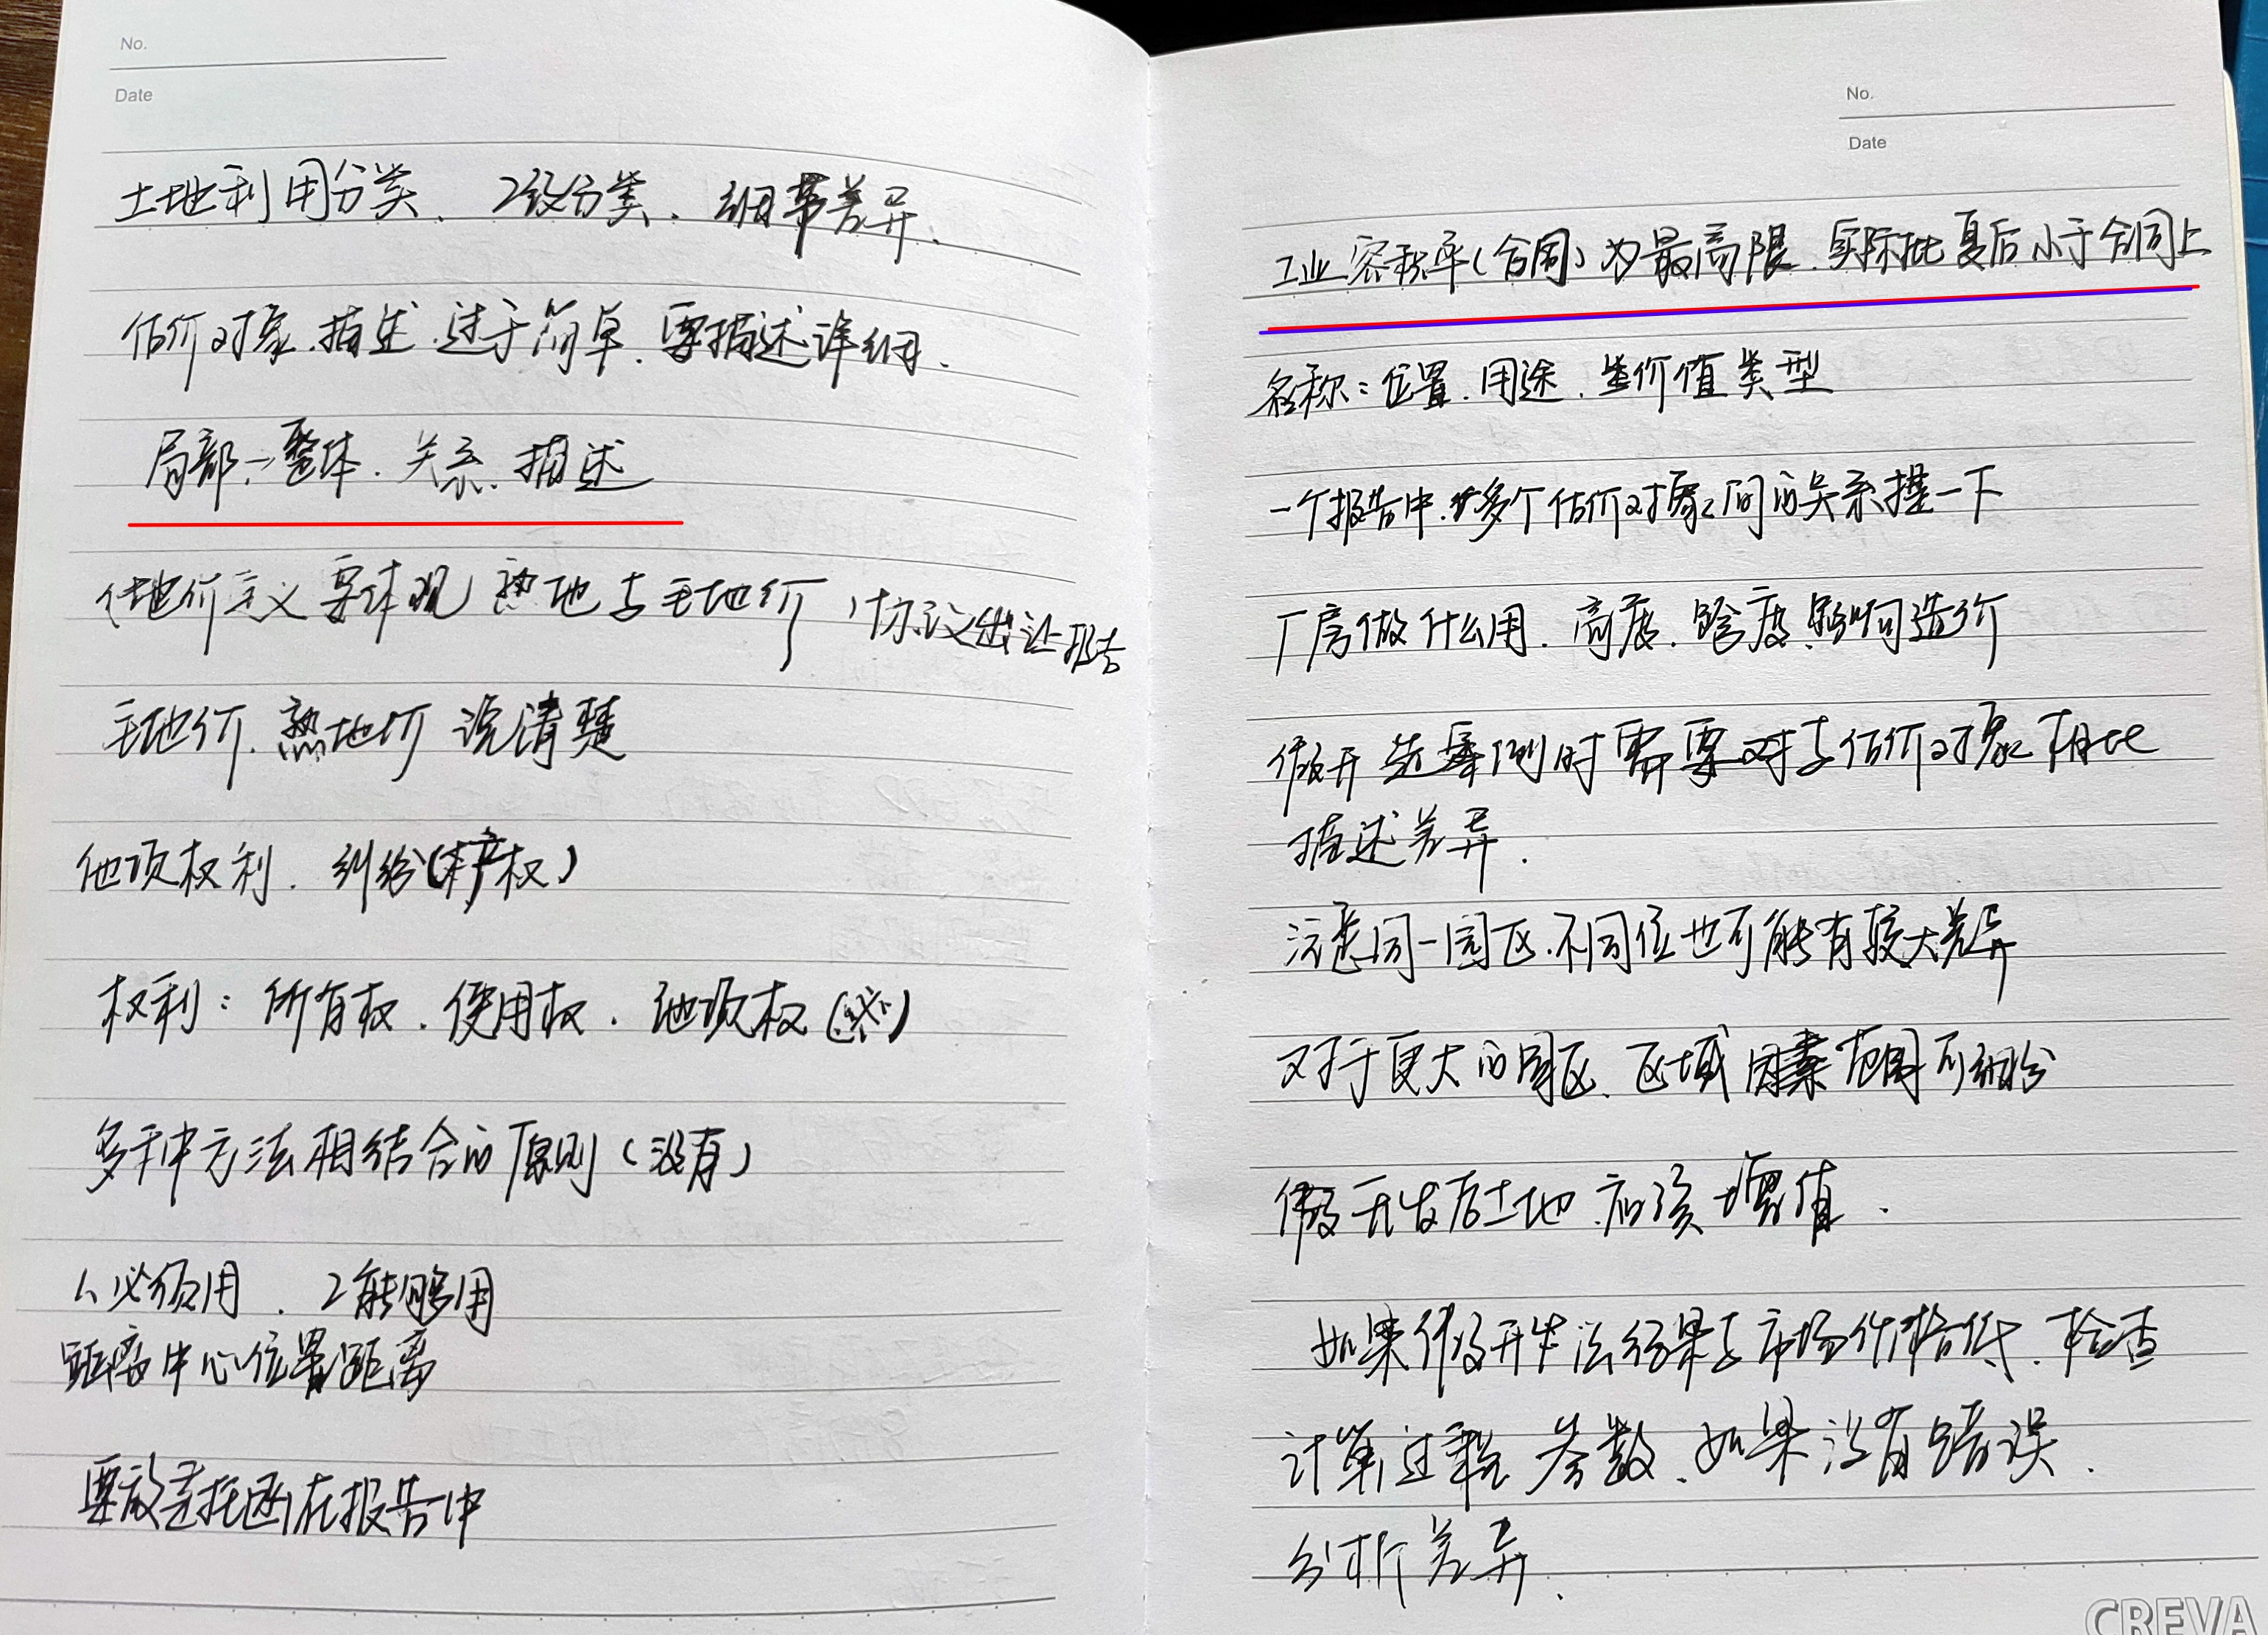 No.
Date
土地利用分类、2级分类、细节差异、
估价对象、描述、过于简单、要描述详细、
局部→整体、关系、描述
地价定义要体现熟地与毛地价 协议出让报告
毛地价、熟地价 说清楚
他项权利、纠纷(产权)
权利：所有权、使用权、他项权
多种方法相结合的原则（没有）
1、必须用、2能够用
距离中心位置距离
要放委托函在报告中
No.
Date
工业容积率(合同)为最高限、实际批复后小于合同上
名称：位置、用途、价值类型
一个报告中、多个估价对象之间的关系提一下
厂房做什么用、高度、跨度、影响造价
假开选案例时需要与估价对象相比
描述差异、
注意同一园区、不同位也可能有较大差异
对于更大的园区、区域因素范围可细分
假开发后土地、应该增值、
如果假开发法结果与市场价格低、检查
计算过程 参数、如果没有错误、
分析差异、
CREVA